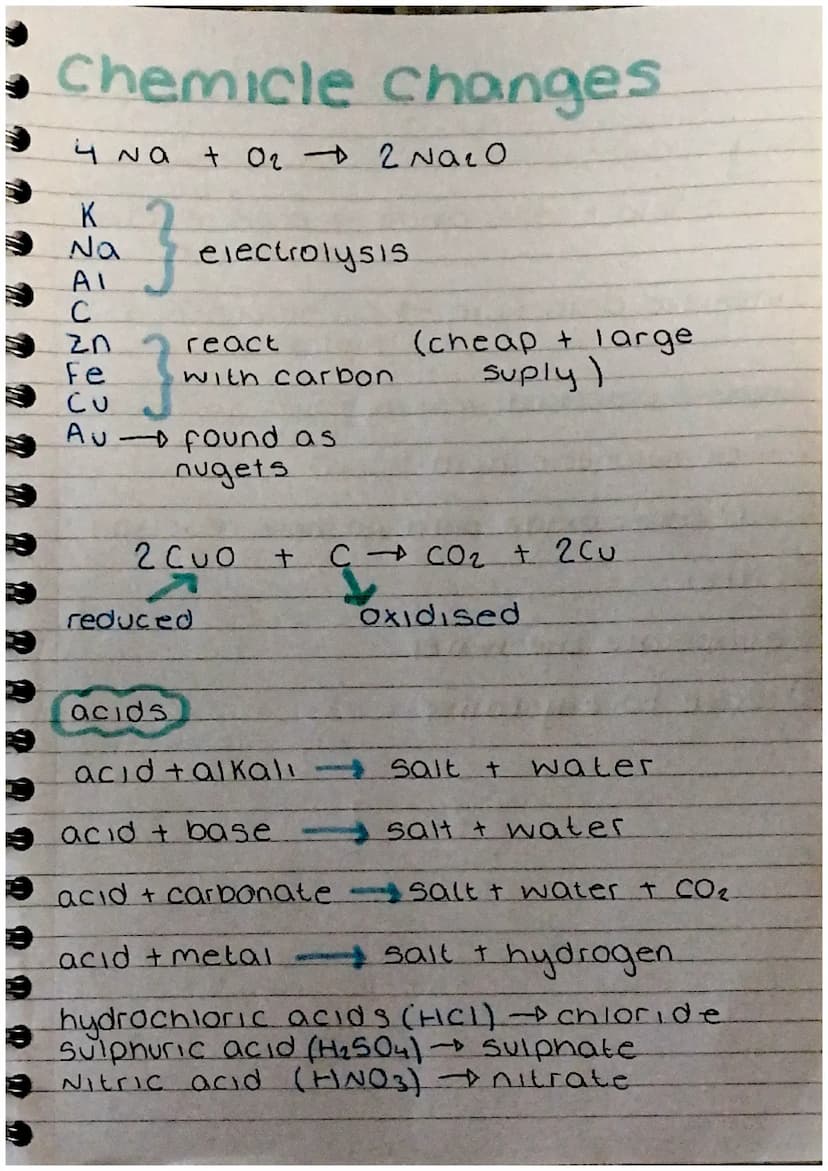 Chemicle Changes
4 Na + O₂ → 2 Na₂O
K
Na } electrolysis
Al
C
Zn } react (cheap + large
Fe with carbon suply)
Cu
Au → found as
nugets
2 CuO + C → CO₂ + 2Cu
reduced oxidised
acids
acid + alkali → salt + water
acid + base → salt + water
acid + carbonate → salt + water + CO₂
acid + metal → salt + hydrogen
hydrochloric acids (HCl) → chloride
sulphuric acid (H₂SO₄) → sulphate
Nitric acid (HNO₃) → nitrate